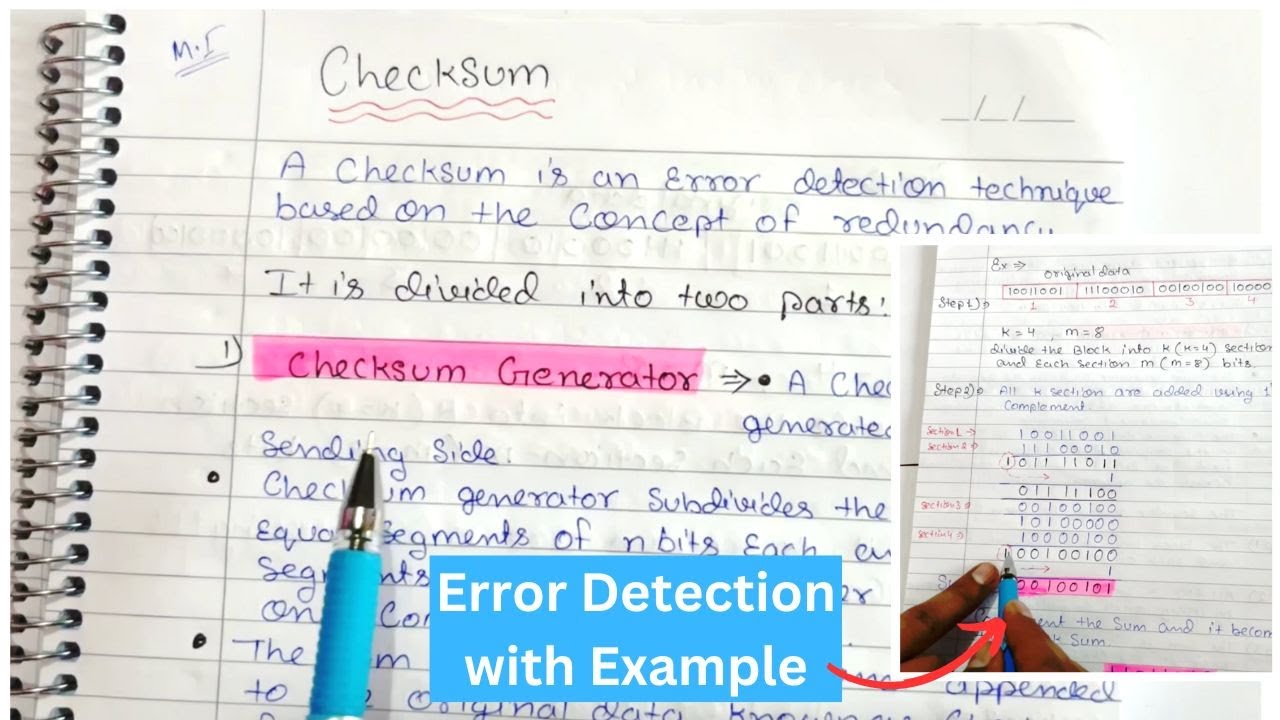 M.I
Checksum
__/__/__
A Checksum is an Error detection technique
based on the Concept of redundancy
It is divided into two parts:
1) Checksum Generator ⇒ • A Chec
generated
Sending Side.
• Checksum generator Subdivides the
Equal Segments of n bits Each an
Segments
on
• The
to original data known as
appended
Error Detection
with Example
Ex ⇒
original data
Step1)⇒ 10011001 11100010 00100100 10000
1 2 3 4
k = 4 , m = 8
divide the Block into k (k=4) section
and Each section m (m=8) bits.
Step2)⇒ All k section are added using 1'
Complement.
Section1 ⇒ 10011001
Section2 ⇒ 11100010
101111011
1
01111100
Section3 ⇒ 00100100
10100000
Section4 ⇒ 10000100
100100100
1
00100101
the Sum and it becom
Sum